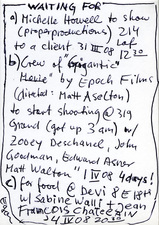 WAITING FOR
a) Michelle Howell to show
(prop&productions) 214
to a client 31 III 08 Laf
1230
b) Crew of "Gigantic"
Movie" by Epoch Films
(director: Matt Aselton)
to start shooting @ 319
Grand (got up 3 am) w/
Zooey Deschanel, John
Goodman, Edward Asner
Matt Walton" 1 IV 08 4 days!
c) for food @ Devi 8 E 18th
w/ Sabine Wall + Jean
François Chateau in
IV 08 2030